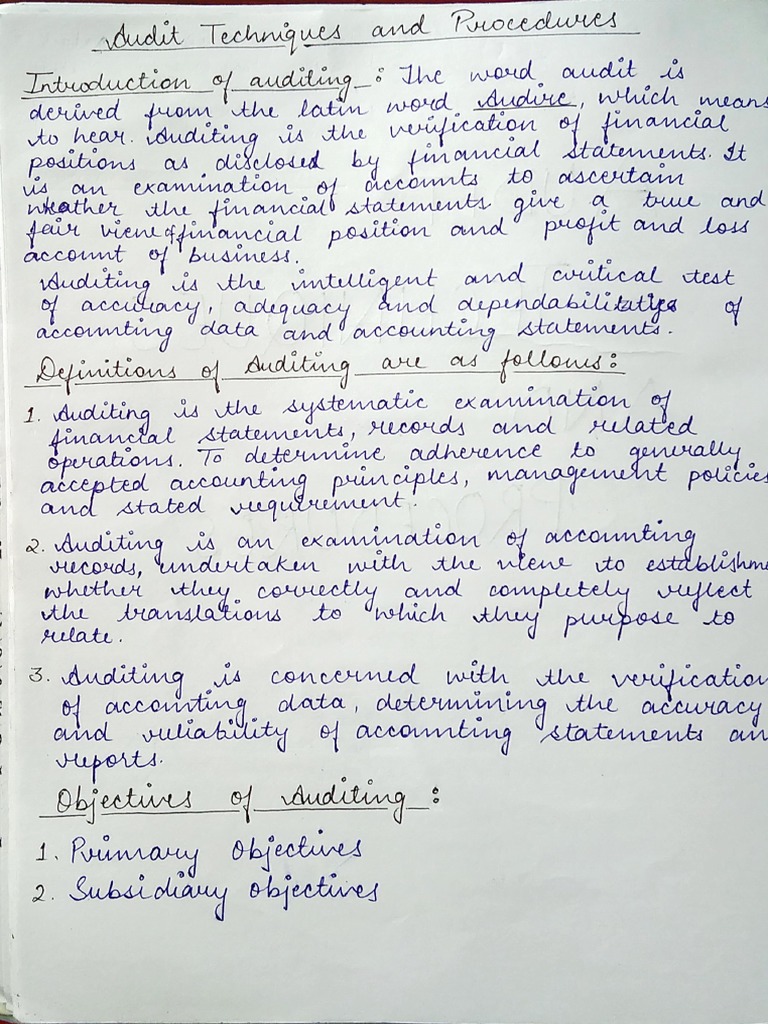 Audit Techniques and Procedures
Introduction of auditing : The word audit is
derived from the latin word Audire, which means
to hear. Auditing is the verification of financial
positions as disclosed by financial statements. It
is an examination of accounts to ascertain
wheather the financial statements give a true and
fair view of financial position and profit and loss
account of business.
Auditing is the intelligent and critical test
of accuracy, adequacy and of
accounting data and accounting statements.
Definitions of Auditing are as follows :
1. Auditing is the systematic examination of
financial statements, records and related
operations. To determine adherence to generally
accepted accounting principles, management policies
and stated requirement.
2. Auditing is an examination of accounting
records, undertaken with the view to establishme
whether they correctly and completely reflect
the translations to which they purpose to
relate.
3. Auditing is concerned with the verification
of accounting data, determining the accuracy
and reliability of accounting statements an
reports.
Objectives of Auditing :
1. Primary Objectives
2. Subsidiary objectives